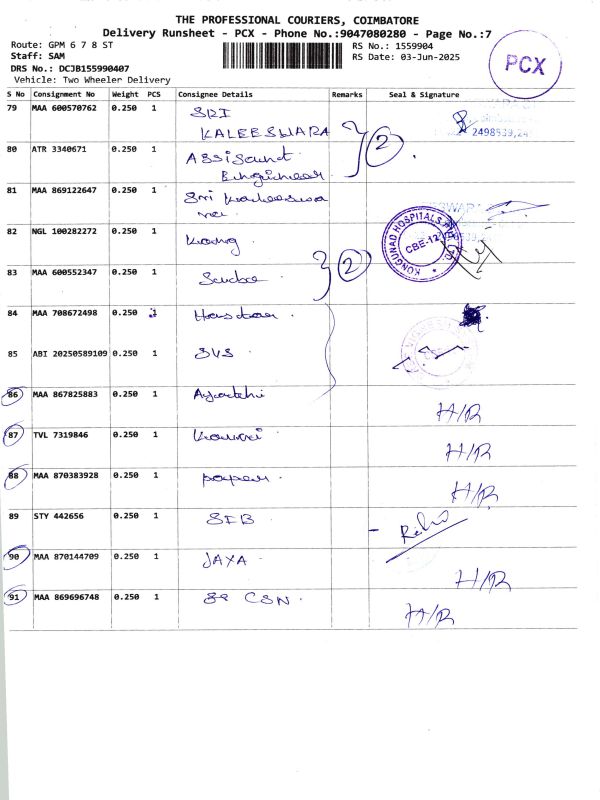 THE PROFESSIONAL COURIERS, COIMBATORE
Delivery Runsheet - PCX - Phone No.:9047080280 - Page No.:7
Route: GPM 6 7 8 ST
RS No.: 1559904
Staff: SAM
RS Date: 03-Jun-2025
DRS No.: DCJB155990407
Vehicle: Two Wheeler Delivery
PCX
S No Consignment No Weight PCS Consignee Details Remarks Seal & Signature
79 MAA 600570762 0.250 1 SRI
KALEESWARA
2498539,24
2
80 ATR 3340671 0.250 1 Assisant
Engineer
81 MAA 869122647 0.250 1 Sri Kaleeswa
KONGUNAD HOSPITALS
CBE-12
82 NGL 100282272 0.250 1
83 MAA 600552347 0.250 1
2
84 MAA 708672498 0.250 1
85 ABI 20250589109 0.250 1 SVS
86 MAA 867825883 0.250 1
H/R
87 TVL 7319846 0.250 1
H/R
88 MAA 870383928 0.250 1
H/R
89 STY 442656 0.250 1 SIB
90 MAA 870144709 0.250 1 JAYA
H/R
91 MAA 869696748 0.250 1 CSN
H/R